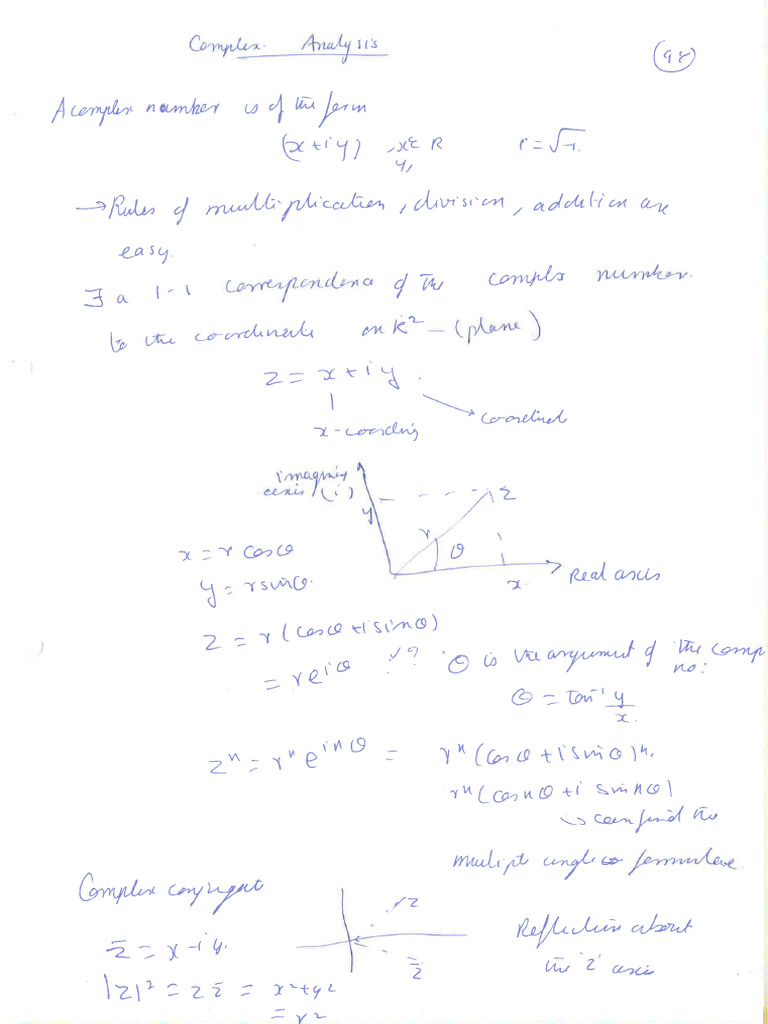 Complex Analysis
98
A complex number is of the form
(x + i y) x, y ∈ R i = √-1.
→ Rules of multiplication, division, addition are
easy.
∃ a 1-1 correspondence of the complx number.
to the coordinate on R² – (plane)
z = x + i y.
x-coording
coordinat
imaginry
axis (i)
z
y
r
θ
x
Real axis
x = r cosθ
y = r sinθ.
z = r (cosθ + i sinθ)
= r e^{iθ} !? θ is the argument of the comp
no:
θ = tan⁻¹ y/x.
zⁿ = rⁿ e^{inθ} = rⁿ (cosθ + i sinθ)ⁿ.
rⁿ (cos nθ + i sin nθ)
↪ can find the
multiple angle formulae
Complex conjugat
z
z̄ = x - iy.
z̄
Reflection about
the 'z' axis
|z|² = z z̄ = x² + y²
= r²